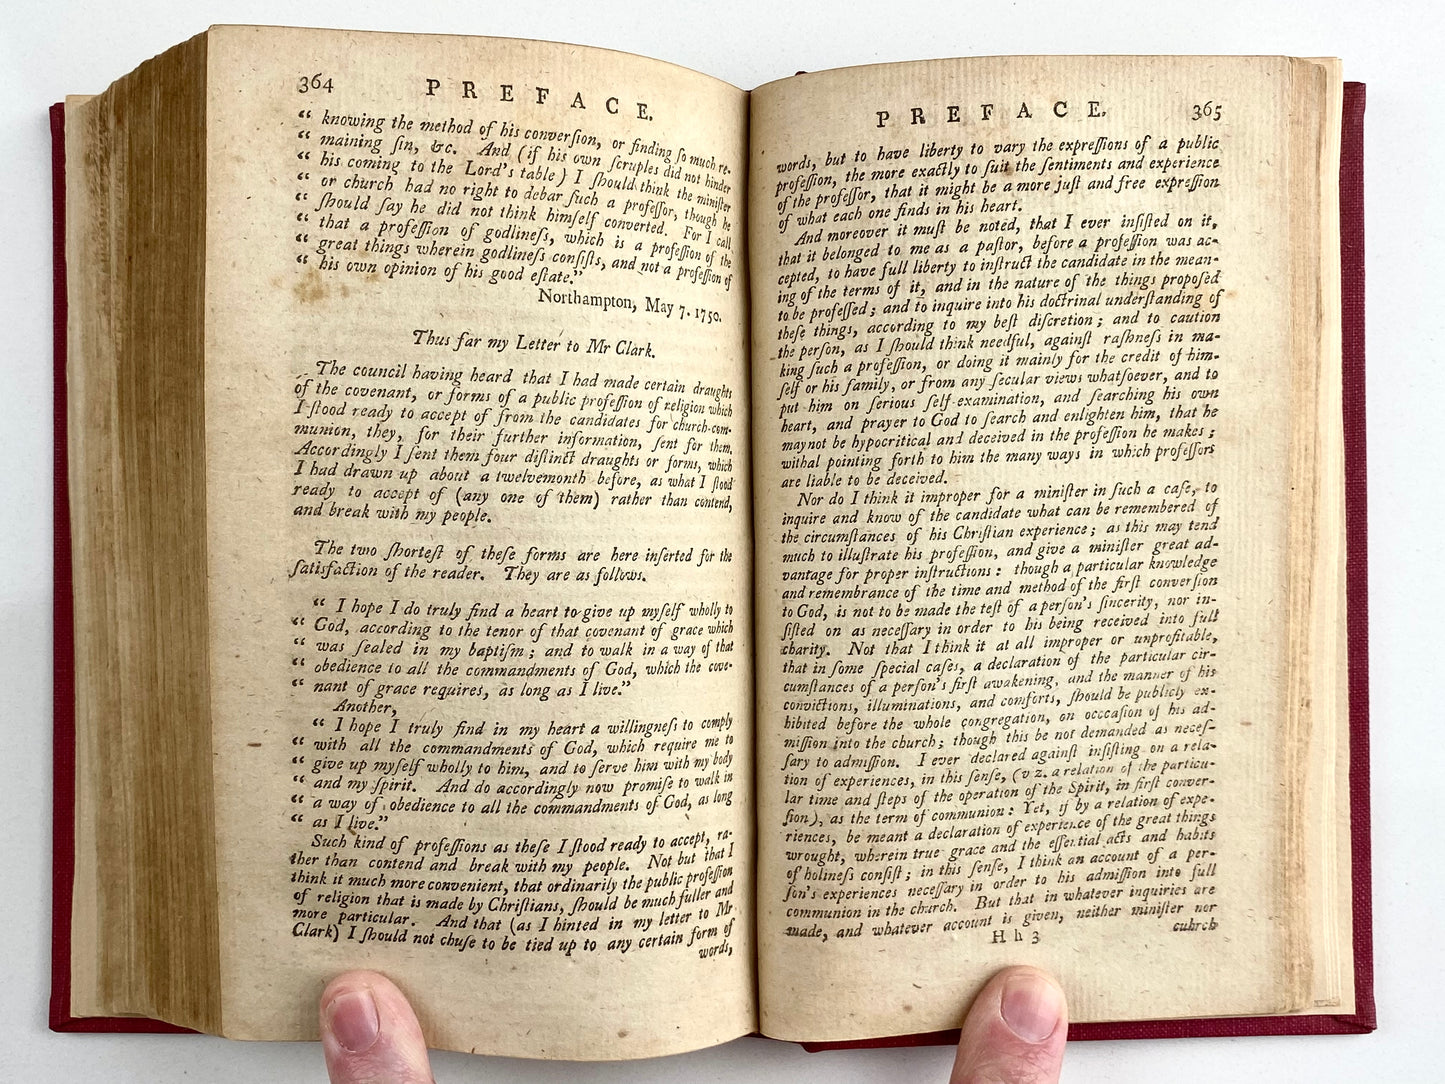 364 PREFACE.
“ knowing the method of his converſion, or finding ſo much re-
“ maining ſin, &c. And (if his own ſcruples did not hinder
“ his coming to the Lord's table) I ſhould think the miniſter
“ or church had no right to debar ſuch a profeſſor, though he
“ ſhould ſay he did not think himſelf converted. For I call
“ that a profeſſion of godlineſs, which is a profeſſion of the
“ great things wherein godlineſs conſiſts, and not a profeſſion of
“ his own opinion of his good eſtate.”
Northampton, May 7. 1750.
Thus far my Letter to Mr Clark.
The council having heard that I had made certain draughts
of the covenant, or forms of a public profeſſion of religion which
I ſtood ready to accept of from the candidates for church-com-
munion, they, for their further information, ſent for them.
Accordingly I ſent them four diſtinct draughts or forms, which
I had drawn up about a twelvemonth before, as what I ſtood
ready to accept of (any one of them) rather than contend,
and break with my people.
The two ſhorteſt of theſe forms are here inſerted for the
ſatisfaction of the reader. They are as follows.
“ I hope I do truly find a heart to give up myſelf wholly to
“ God, according to the tenor of that covenant of grace which
“ was ſealed in my baptiſm ; and to walk in a way of that
“ obedience to all the commandments of God, which the cove-
“ nant of grace requires, as long as I live.”
Another,
“ I hope I truly find in my heart a willingneſs to comply
“ with all the commandments of God, which require me to
“ give up myſelf wholly to him, and to ſerve him with my body
“ and my ſpirit. And do accordingly now promiſe to walk in
“ a way of obedience to all the commandments of God, as long
“ as I live.”
Such kind of profeſſions as theſe I ſtood ready to accept, ra-
ther than contend and break with my people. Not but that I
think it much more convenient, that ordinarily the public profeſſion
of religion that is made by Chriſtians, ſhould be much fuller and
more particular. And that (as I hinted in my letter to Mr
Clark) I ſhould not chuſe to be tied up to any certain form of
words,
PREFACE. 365
words, but to have liberty to vary the expreſſions of a public
profeſſion, the more exactly to ſuit the ſentiments and experience
of the profeſſor, that it might be a more juſt and free expreſſion
of what each one finds in his heart.
And moreover it muſt be noted, that I ever inſiſted on it,
that it belonged to me as a paſtor, before a profeſſion was ac-
cepted, to have full liberty to inſtruct the candidate in the mean-
ing of the terms of it, and in the nature of the things propoſed
to be profeſſed ; and to inquire into his doctrinal underſtanding of
theſe things, according to my beſt diſcretion ; and to caution
the perſon, as I ſhould think needful, against raſhneſs in ma-
king ſuch a profeſſion, or doing it mainly for the credit of him-
ſelf or his family, or from any ſecular views whatſoever, and to
put him on ſerious ſelf-examination, and ſearching his own
heart, and prayer to God to ſearch and enlighten him, that he
may not be hypocritical and deceived in the profeſſion he makes ;
withal pointing forth to him the many ways in which profeſſors
are liable to be deceived.
Nor do I think it improper for a miniſter in ſuch a caſe, to
inquire and know of the candidate what can be remembered of
the circumſtances of his Chriſtian experience ; as this may tend
much to illuſtrate his profeſſion, and give a miniſter great ad-
vantage for proper inſtructions : though a particular knowledge
and remembrance of the time and method of the firſt converſion
to God, is not to be made the teſt of a perſon's ſincerity, nor in-
ſiſted on as neceſſary in order to his being received into full
charity. Not that I think it at all improper or unprofitable,
that in ſome ſpecial caſes, a declaration of the particular cir-
cumſtances of a perſon's firſt awakening, and the manner of his
convictions, illuminations, and comforts, ſhould be publicly ex-
hibited before the whole congregation, on occcaſion of his ad-
miſſion into the church ; though this be not demanded as neceſ-
ſary to admiſſion. I ever declared againſt inſiſting on a rela-
tion of experiences, in this ſenſe, (v z. a relation of the particu-
lar time and ſteps of the operation of the Spirit, in firſt conver-
ſion), as the term of communion : Yet, if by a relation of expe-
riences, be meant a declaration of experience of the great things
wrought, wherein true grace and the eſſential acts and habits
of holineſs conſiſt ; in this ſenſe, I think an account of a per-
ſon's experiences neceſſary in order to his admiſſion into full
communion in the church. But that in whatever inquiries are
made, and whatever account is given, neither miniſter nor
H h 3 cuhrch